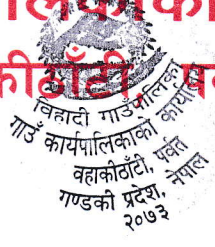 लिकाका
कीठाँटी, पर्वत
विहादी गाउँपालिका
गाउँ कार्यपालिकाको कार्यालय
वहाकीठाँटी, पर्वत
गण्डकी प्रदेश, नेपाल
२०७३